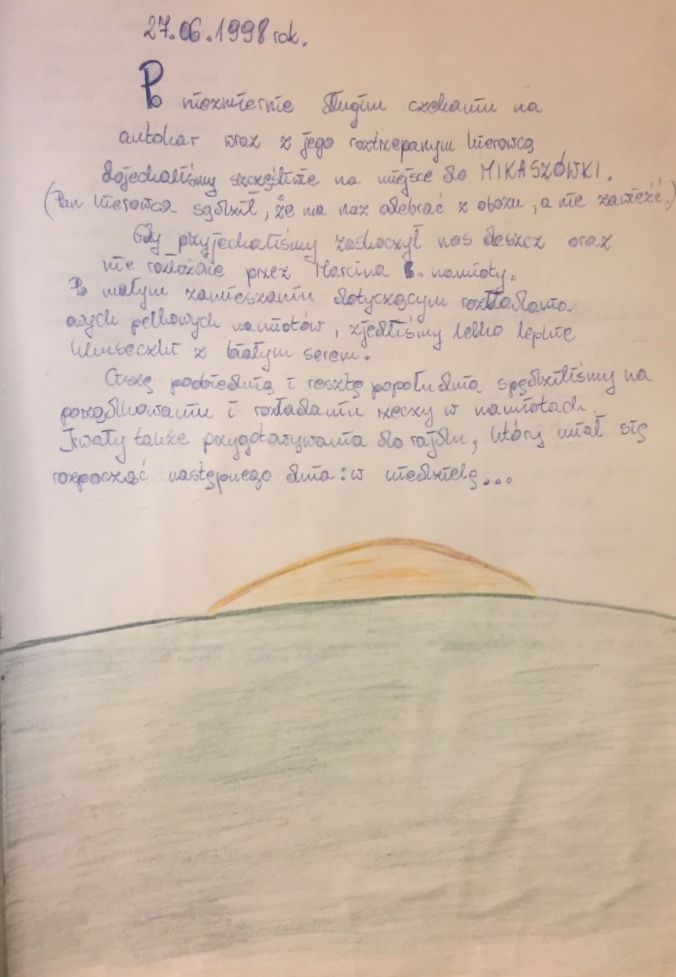 27.06.1998 rok.
Po niezmiernie długim czekaniu na
autokar wraz z jego roztrzepanym kierowcą
dojechaliśmy szczęśliwie na miejsce do MIKASZÓWKI.
(Pan kierowca sądził, że ma nas odebrać z obozu, a nie zawieźć.)
Gdy przyjechaliśmy zaskoczył nas deszcz oraz
nie rozłożone przez Marcina B. namioty.
Po małym zamieszaniu dotyczącym rozkładania
owych pechowych namiotów, zjedliśmy lekko lepkie
kanapeczki z białym serem.
Ciszę poobiednią i resztę popołudnia spędziliśmy na
porządkowaniu i rozkładaniu rzeczy w namiotach.
Trwały także przygotowywania do rajdu, który miał się
rozpocząć następnego dnia: w niedzielę...